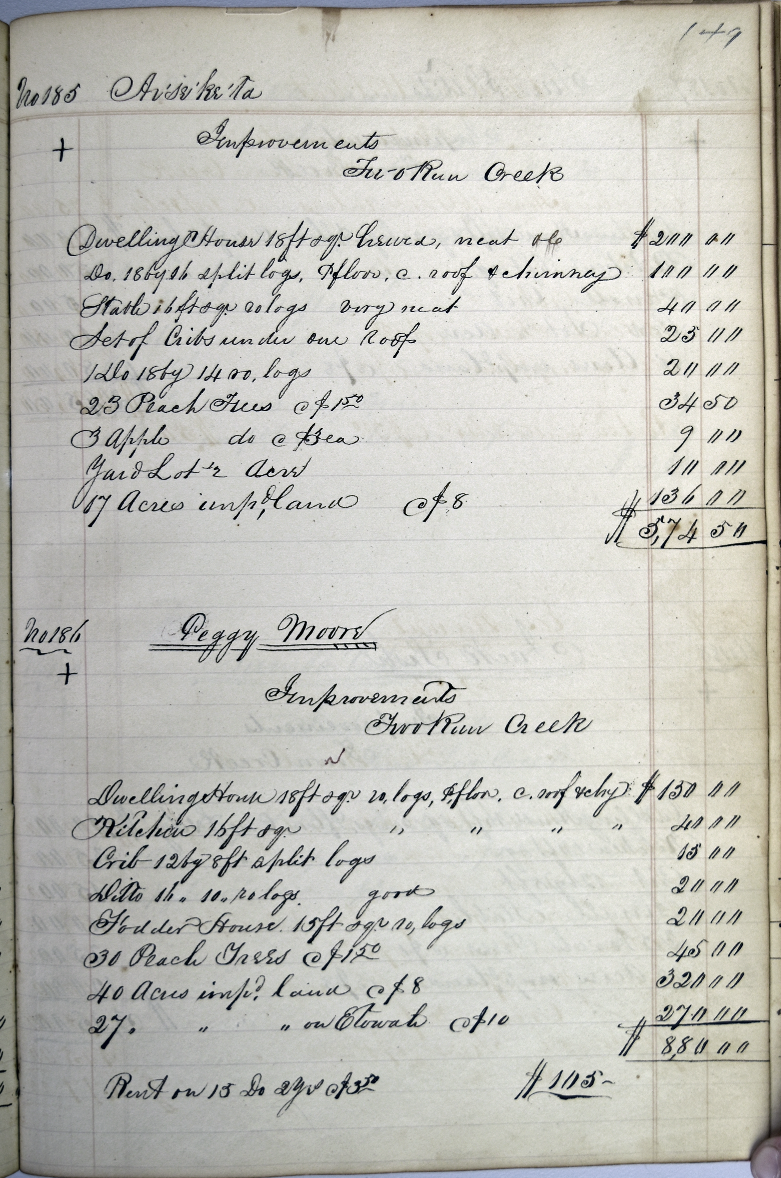 149
No 185 Ai'sē'kē'ta
+ Improvements
Two Run Creek
Dwelling House 18ft sqr hewed, neat &c $200 00
Do. 18 by 16 split logs, P floor, c. roof & chimney 100 00
Stable 16 ft sqr ro logs very neat 40 00
Set of Cribs under one roof 25 00
1 Do 18 by 14 ro, logs 20 00
23 Peach Trees @ $1 50 34 50
3 Apple do @ $3 ea 9 00
Yard Lot 2 Acre 10 00
17 Acres impd, land @ $8 136 00
$ 5,74 50
No 186 Peggy Moore
+
Improvements
Two Run Creek
Dwelling House 18ft sqr ro, logs, P floor, c. roof & chy $ 150 00
Kitchen 16 ft sqr " " " " 40 00
Crib 12 by 8ft split logs 15 00
Ditto 16 " 10 " ro logs. good 20 00
Fodder House. 15ft sqr ro, logs 20 00
30 Peach Trees @ $1 50 45 00
40 Acres impd, land @ $8 320 00
27 " " " on Etowah @ $10 270 00
$ 8,80 00
Rent on 15 Do 2 Yrs @ $3 50 $ 105 -